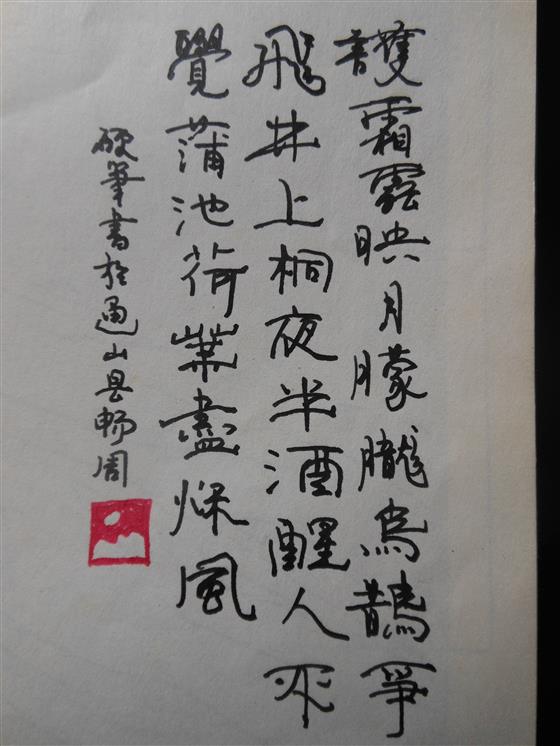 護霜映月朦朧烏鵲爭
飛井上桐夜半酒醒人不
覺蒲池荷葉盡燥風
硬筆書於通山县畅周